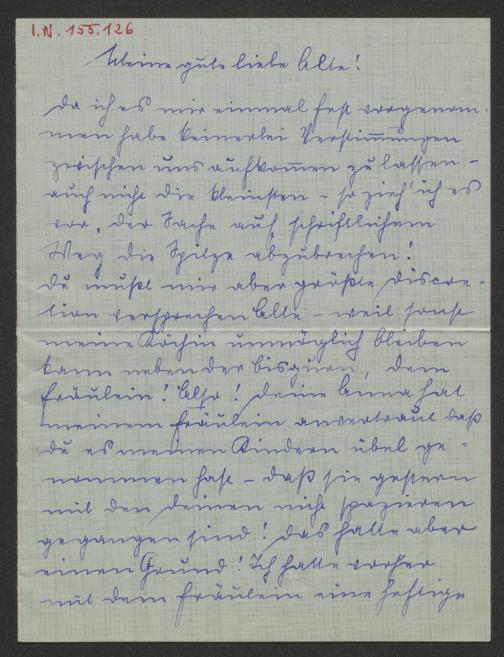 I.N. 155.126
Meine gute liebe Alte!
Da ich es mir einmal fest vorgenom-
men habe keinerlei Verstim̅ungen
zwischen uns aufkom̅en zu lassen –
auch nicht die kleinsten – so zieh' ich es
vor, der Sache auf schriftlichem
Weg die Spitze abzubrechen!
Du mußt mir aber größte Discre-
tion versprechen Alte – weil sonst
meine Köchin unmöglich bleiben
kann neben der bisgurn, dem
Fräulein! Also! Deine Anna hat
meinem Fräulein anvertraut daß
du es meinen Kindern übel ge-
nommen hast – daß sie gestern
mit den deinen nicht spazieren
gegangen sind! Das hatte aber
einen Grund! Ich hatte vorher
mit dem Fräulein eine heftige